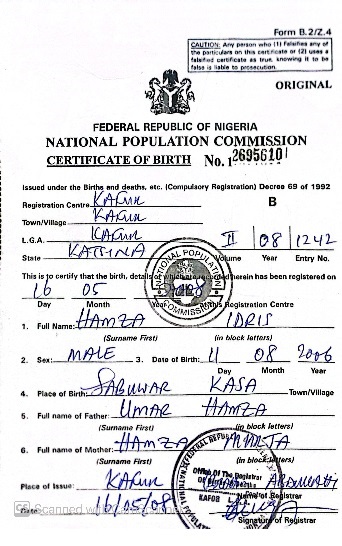 Form B.2/Z.4
CAUTION: Any person who (1) Falsifies any of
the particulars on this certificate or (2) uses a
falsified certificate as true, knowing it to be
false is liable to prosecution.
ORIGINAL
FEDERAL REPUBLIC OF NIGERIA
NATIONAL POPULATION COMMISSION
CERTIFICATE OF BIRTH No.12695610
Issued under the Births and deaths, etc. (Compulsory Registration) Decree 69 of 1992
Registration Centre KAFUR B
Town/Village KAFUR
L.G.A. KAFUR II 08 1242
State KATSINA Volume Year Entry No.
This is to certify that the birth, details of which are recorded herein has been registered on
16 05
Day Month Year at this Registration Centre
NATIONAL POPULATION COMMISSION
1. Full Name: HAMZA IDRIS
(Surname First) (in block letters)
2. Sex: MALE 3. Date of Birth: 11 08 2006
Day Month Year
4. Place of Birth: SABUWAR KASA Town/Village
5. Full name of Father: UMAR HAMZA
(Surname First) (in block letters)
6. Full name of Mother: HAMZA
(Surname First) (in block letters)
Office Of The Registrar
Place of Issue: KAFUR ABDULLAHI
KAFOR Name of Registrar
Date 16/05/08
Signature of Registrar
Scanned with